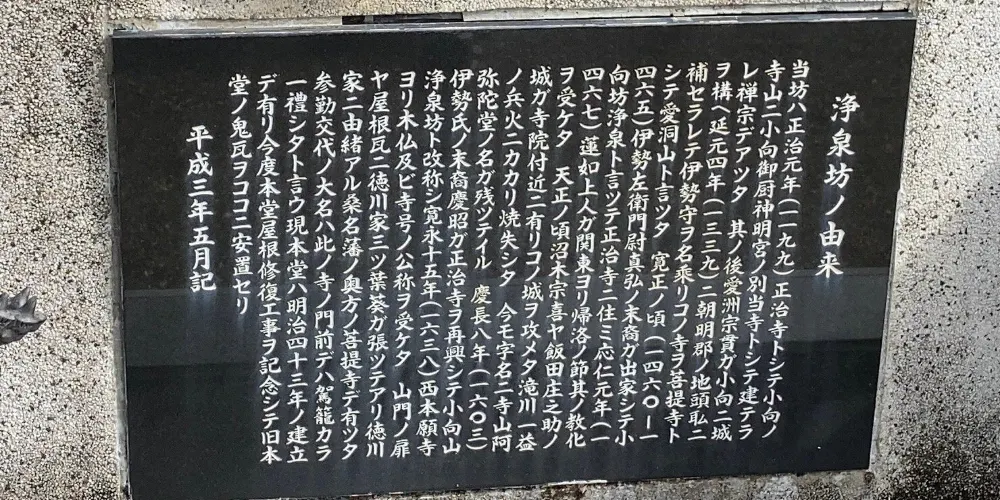 浄泉坊ノ由来
当坊ハ正治元年(一一九九)正治寺トシテ小向ノ
寺山ニ小向御厨神明宮ノ別当寺トシテ建テラ
レ禅宗デアツタ　其ノ後愛洲宗貫ガ小向ニ城
ヲ構ヘ延元四年(一三三九)ニ朝明郡ノ地頭職ニ
補セラレテ伊勢守ヲ名乗リコノ寺ヲ菩提寺ト
シテ愛洞山ト言ツタ　寛正ノ頃(一四六〇ー一
四六五)伊勢左衛門尉真弘ノ末裔ガ出家シテ小
向坊浄泉ト言ツテ正治寺ニ住ミ応仁元年(一
四六七)蓮如上人ガ関東ヨリ帰洛ノ節其ノ教化
ヲ受ケタ　天正ノ頃沼木宗喜ヤ飯田庄之助ノ
城ガ寺院付近ニ有リコノ城ヲ攻メタ滝川一益
ノ兵火ニカカリ焼失シタ　今モ字名ニ寺山阿
弥陀堂ノ名ガ残ツテイル　慶長八年(一六〇三)
伊勢氏ノ末裔慶昭ガ正治寺ヲ再興シテ小向山
浄泉坊ト改称シ寛永十五年(一六三八)西本願寺
ヨリ木仏及ビ寺号ノ公称ヲ受ケタ　山門ノ扉
ヤ屋根瓦ニ徳川家三ツ葉葵ガ張ツテアリ徳川
家ニ由緒アル桑名藩ノ奥方ノ菩提寺デ有ツタ
参勤交代ノ大名ハ此ノ寺ノ門前デハ駕籠カラ
一禮シタト言ウ現本堂ハ明治四十三年ノ建立
デ有リ今度本堂屋根修復工事ヲ記念シテ旧本
堂ノ鬼瓦ヲココニ安置セリ
平成三年五月記